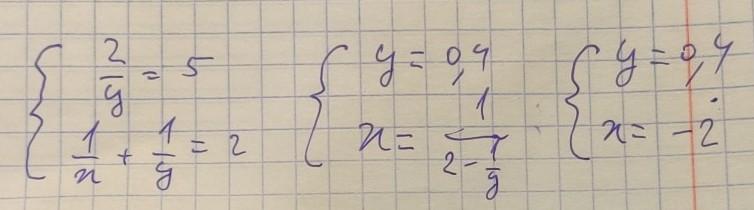 { 2/y = 5
1/x + 1/y = 2
{ y = 0,4
x = 1/(2 - 1/y)
{ y = 0,4
x = -2